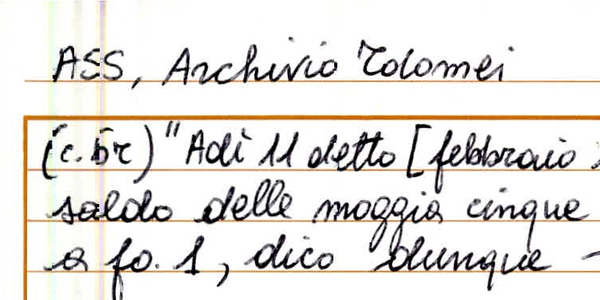 ASS, Archivio Tolomei
(c. 5r) "Adì 11 detto [febbraio
saldo delle moggia cinque
a fo. 1, dico dunque -